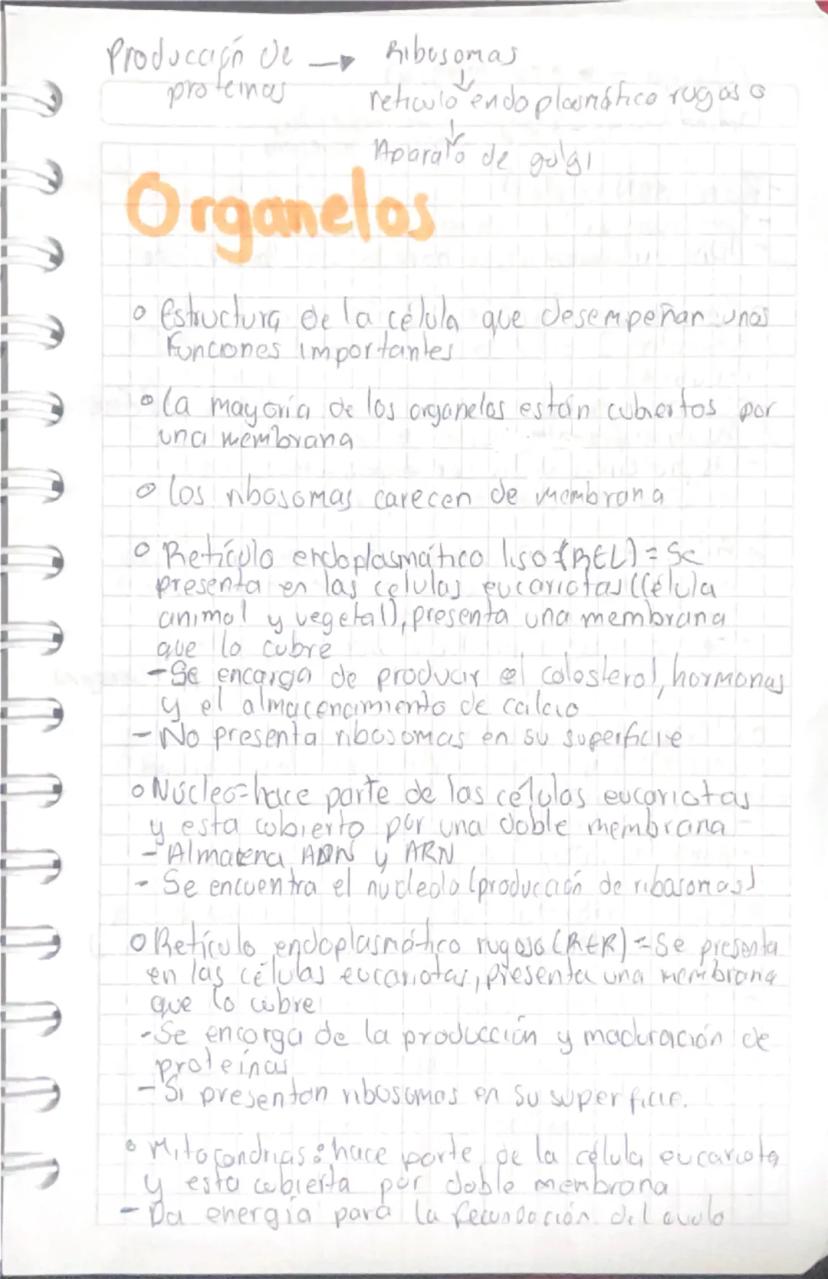 Producción de → Ribosomas
proteinas
↓
reticulo endoplasmático rugoso
↓
Aparato de golgi
Organelos
o Estructura de la célula que desempeñan unas
funciones importantes
o La mayoría de los organelos están cubiertos por
una membrana
o los ribosomas carecen de membrana
o Retículo endoplasmático liso (REL) = Se
presenta en las celulas eucariotas (Célula
animal y vegetal), presenta una membrana
que lo cubre
- Se encarga de producir el colosterol, hormonas
y el almacenamiento de calcio
- No presenta ribosomas en su superficie
o Núcleo = hace parte de las células eucariotas
y esta cubierto por una doble membrana
- Almacena ADN y ARN
- Se encuentra el nucleolo (producción de ribosomas)
o Retículo endoplasmático rugoso (RER) = Se presenta
en las células eucariotas, presenta una membrana
que lo cubre
- Se encarga de la producción y maduración de
proteínas
- Si presentan ribosomas en su superficie.
o Mitocondrias: hace parte de la célula eucariota
y esta cubierta por doble membrana
- Da energía para la fecundación del ovulo